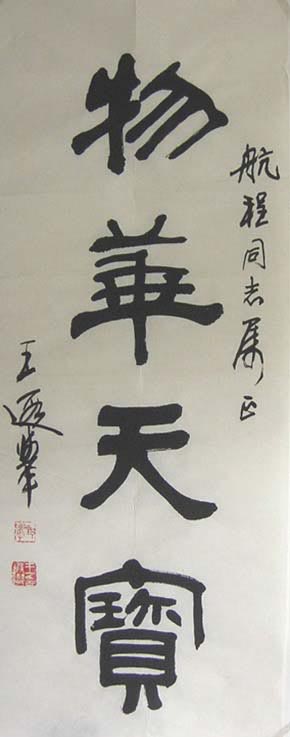 航程同志属正
物華天寶
王遐舉